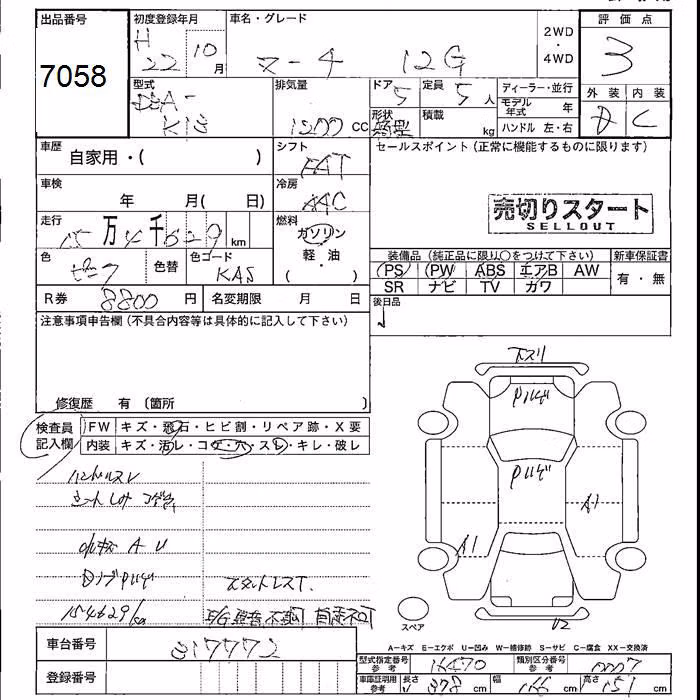 出品番号
7058
初度登録年月
H
22 10 月
車名・グレード
マーチ 12G
2WD
・
4WD
評価点
3
外装 内装
D C
型式
DBA-
K13
排気量
1200 CC
ドア
5
形状
定員
5 人
積載
kg
ディーラー・並行
モデル年式 年
ハンドル 左・右
車歴
自家用・( )
シフト
FAT
セールスポイント(正常に機能するものに限ります)
売切りスタート
SELLOUT
車検
年 月( 日)
冷房
AAC
走行
15 万 4 千 629 km
燃料
ガソリン
・
軽・油
色
色替
色コード
KAS
装備品(純正品に限り○をつけて下さい)
PS PW ABS エアB AW
SR ナビ TV カワ
新車保証書
有・無
R券
8800 円
名変期限 月 日
後日品
注意事項申告欄(不具合内容等は具体的に記入して下さい)
修復歴 有 〔箇所
検査員
記入欄
FW キズ・飛石・ヒビ割・リペア跡・X要
内装 キズ・汚レ・コゲ・穴・スレ・キレ・破レ
ハンドルスレ
シートしみ コゲ穴
A U
154629/km
下スリ
A1
A1
U2
スペア
車台番号
317772
登録番号
A−キズ E−エクボ U−凹み W−補修跡 S−サビ C−腐食 XX−交換済
型式指定番号
参考
16470
類別区分番号
参考
0007
車庫証明用
参考
長さ 378 cm
幅 166 cm
高さ 151 cm